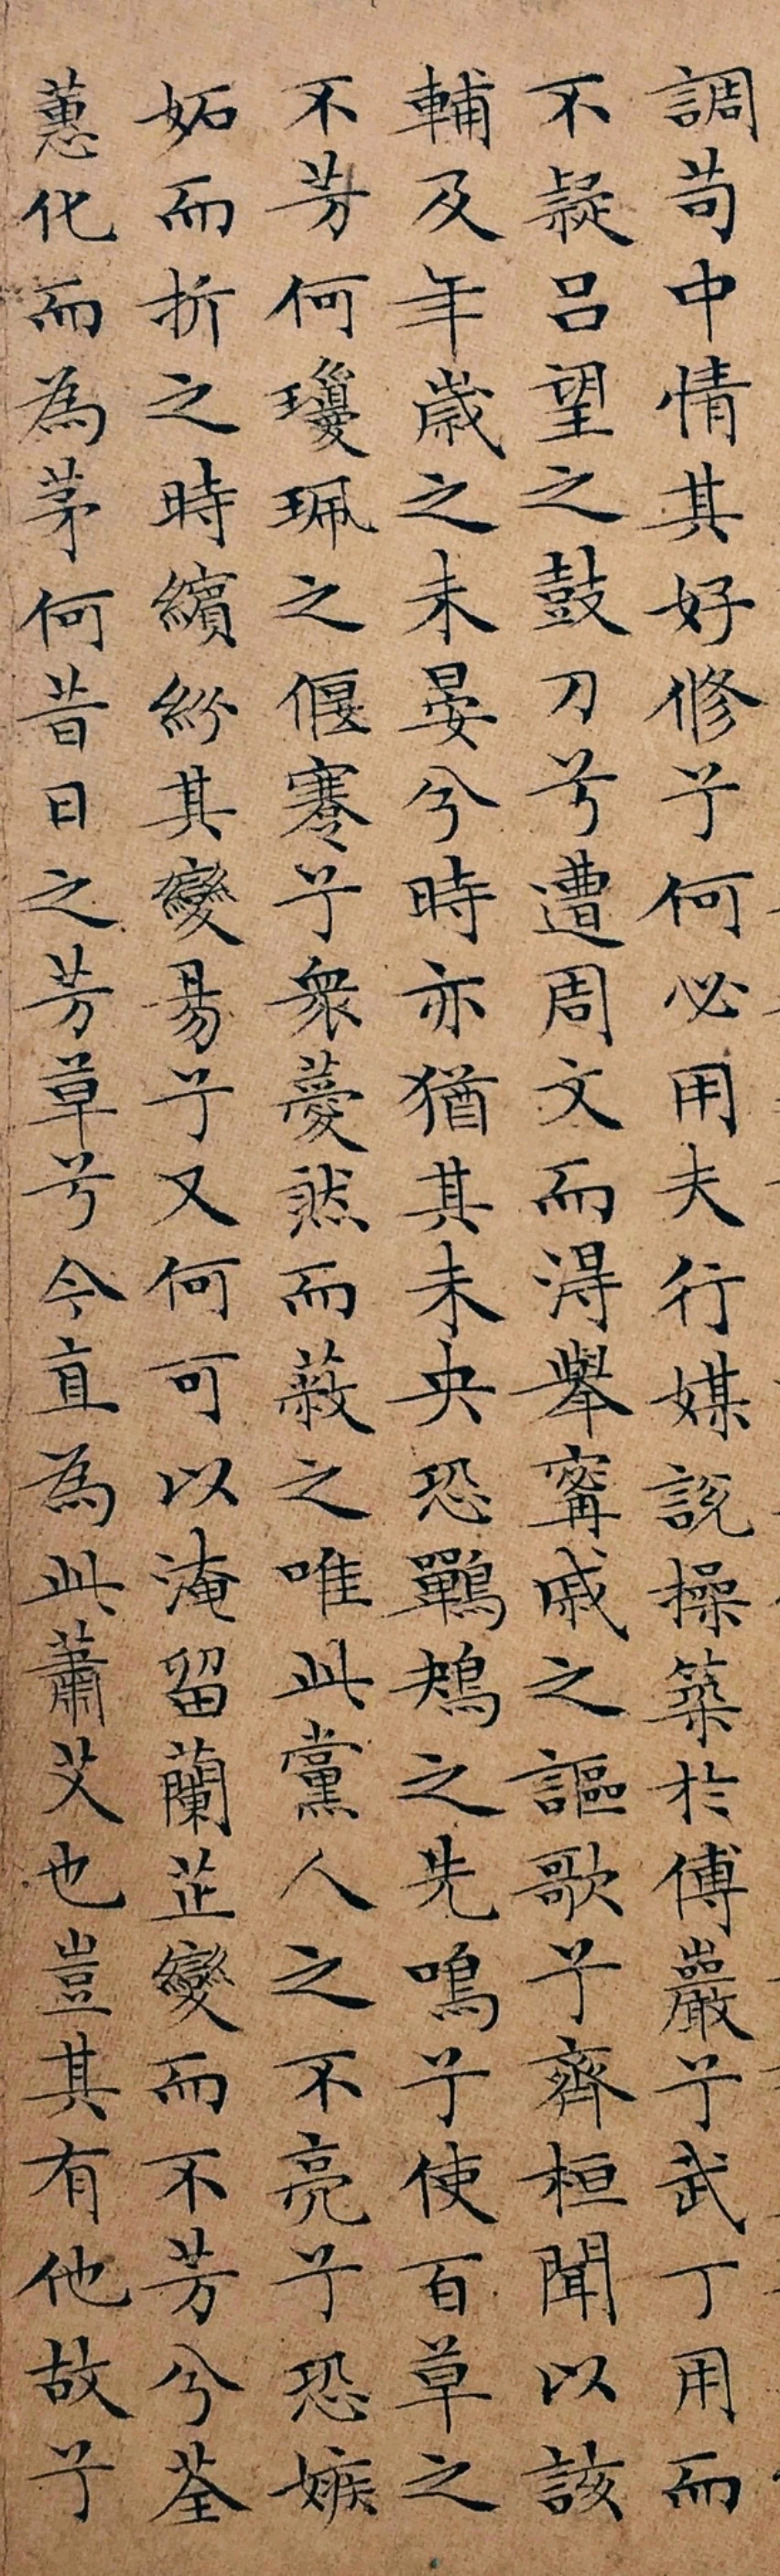 調苟中情其好修兮何必用夫行媒說操築於傅巖兮武丁用而
不疑呂望之鼓刀兮遭周文而得舉甯戚之謳歌兮齊桓聞以該
輔及年歲之未晏兮時亦猶其未央恐鷤鴂之先鳴兮使百草之
不芳何瓊珮之偃蹇兮眾薆然而蔽之唯此黨人之不亮兮恐嫉
妬而折之時繽紛其變易兮又何可以淹留蘭芷變而不芳兮荃
蕙化而為茅何昔日之芳草兮今直為此蕭艾也豈其有他故兮